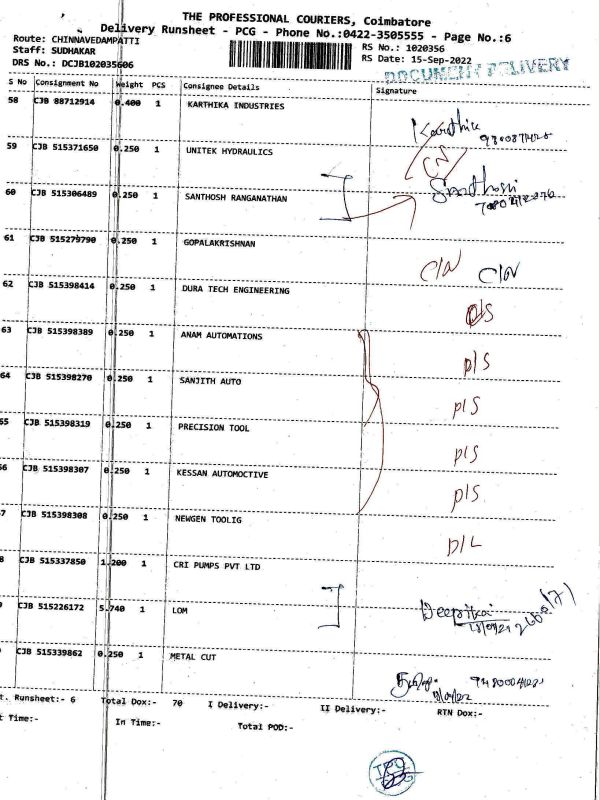 THE PROFESSIONAL COURIERS, Coimbatore
Delivery Runsheet - PCG - Phone No.:0422-3505555 - Page No.:6
Route: CHINNAVEDAMPATTI
Staff: SUDHAKAR
DRS No.: DCJB102035606
RS No.: 1020356
RS Date: 15-Sep-2022
DOCUMENT DELIVERY
S No Consignment No Weight PCS Consignee Details Signature
58 CJB 88712914 0.400 1 KARTHIKA INDUSTRIES Karthik
59 CJB 515371650 0.250 1 UNITEK HYDRAULICS CN
60 CJB 515306489 0.250 1 SANTHOSH RANGANATHAN Santhosh
61 CJB 515279790 0.250 1 GOPALAKRISHNAN C/N C/N
62 CJB 515398414 0.250 1 DURA TECH ENGINEERING D/S
63 CJB 515398389 0.250 1 ANAM AUTOMATIONS D/S
64 CJB 515398270 0.250 1 SANJITH AUTO D/S
65 CJB 515398319 0.250 1 PRECISION TOOL D/S
66 CJB 515398307 0.250 1 KESSAN AUTOMOCTIVE D/S
7 CJB 515398308 0.250 1 NEWGEN TOOLIG D/L
8 CJB 515337850 1.200 1 CRI PUMPS PVT LTD
CJB 515226172 5.740 1 LOM Deepika
CJB 515339862 0.250 1 METAL CUT
t. Runsheet:- 6 Total Dox:- 70 I Delivery:- II Delivery:- RTN Dox:-
t Time:- In Time:- Total POD:-